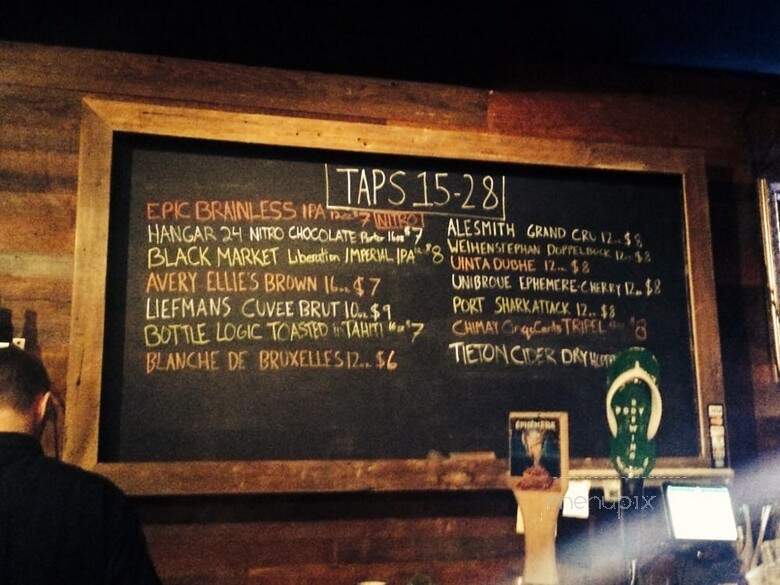 TAPS 15-28
EPIC BRAINLESS IPA 12oz $7 NITRO!
HANGAR 24 NITRO CHOCOLATE Porter 16oz $7
BLACK MARKET Liberation IMPERIAL IPA $8
AVERY ELLIE'S BROWN 16oz $7
LIEFMANS CUVEE BRUT 10oz $9
BOTTLE LOGIC TOASTED in TAHITI $7
BLANCHE DE BRUXELLES 12oz $6
ALESMITH GRAND CRU 12oz $8
WEIHENSTEPHAN DOPPELBOCK 12oz $8
UINTA DUBHE 12oz $8
UNIBROUE EPHEMERE-CHERRY 12oz $8
PORT SHARKATTACK 12oz $8
CHIMAY Cinq Cents TRIPEL $8
TIETON CIDER DRY
EPHEMERE
BREWING
menupix